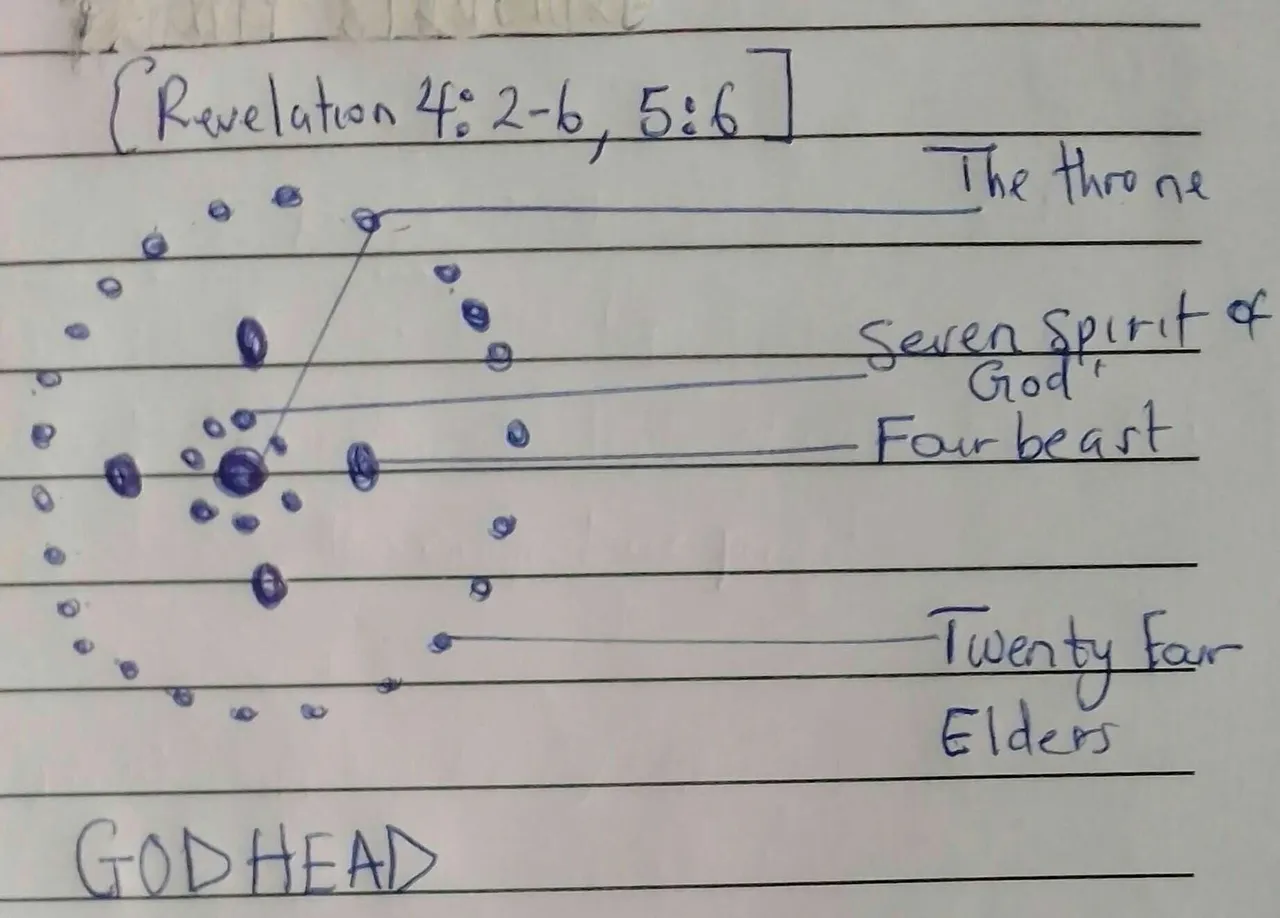 [Revelation 4:2-6, 5:6]
The throne
Seven Spirit of
God
Four beast
Twenty Four
Elders
GODHEAD